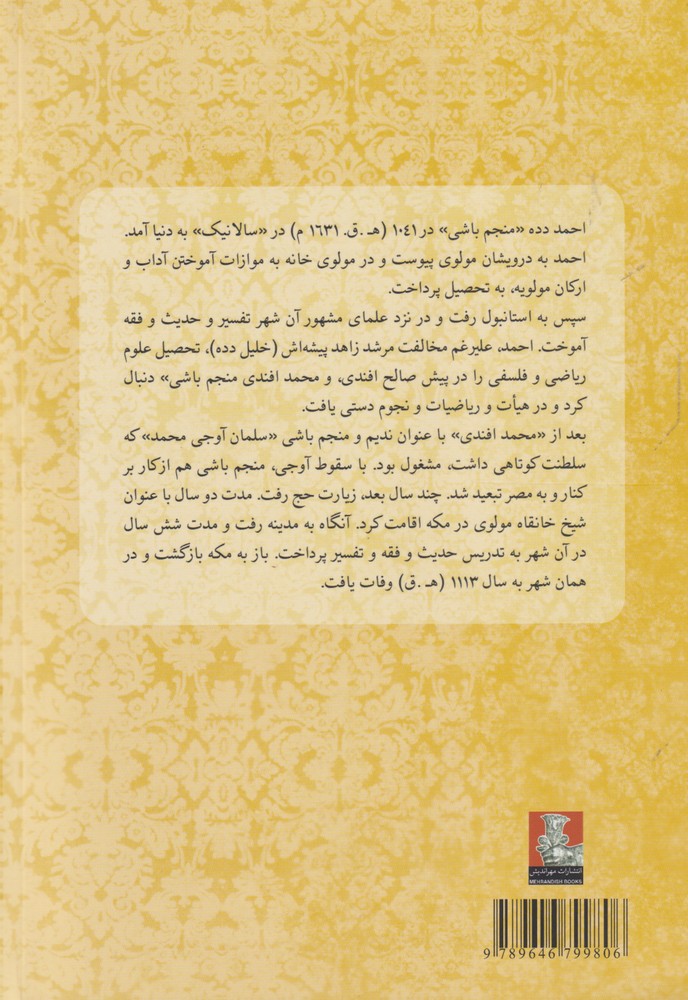 احمد دده «منجم باشی» در ۱۰٤۱ (هـ .ق. ۱٦۳۱ م) در «سالانیک» به دنیا آمد.
احمد به درویشان مولوی پیوست و در مولوی خانه به موازات آموختن آداب و
ارکان مولویه، به تحصیل پرداخت.
سپس به استانبول رفت و در نزد علمای مشهور آن شهر تفسیر و حدیث و فقه
آموخت. احمد، علیرغم مخالفت مرشد زاهد پیشه‌اش (خلیل دده)، تحصیل علوم
ریاضی و فلسفی را در پیش صالح افندی، و محمد افندی منجم باشی» دنبال
کرد و در هیأت و ریاضیات و نجوم دستی یافت.
بعد از «محمد افندی» با عنوان ندیم و منجم باشی «سلمان آوجی محمد» که
سلطنت کوتاهی داشت، مشغول بود. با سقوط آوجی، منجم باشی هم از کار بر
کنار و به مصر تبعید شد. چند سال بعد، زیارت حج رفت. مدت دو سال با عنوان
شیخ خانقاه مولوی در مکه اقامت کرد. آنگاه به مدینه رفت و مدت شش سال
در آن شهر به تدریس حدیث و فقه و تفسیر پرداخت. باز به مکه بازگشت و در
همان شهر به سال ۱۱۱۳ (هـ .ق) وفات یافت.
انتشارات مهراندیش
MEHRANDISH BOOKS
9 789646 799806